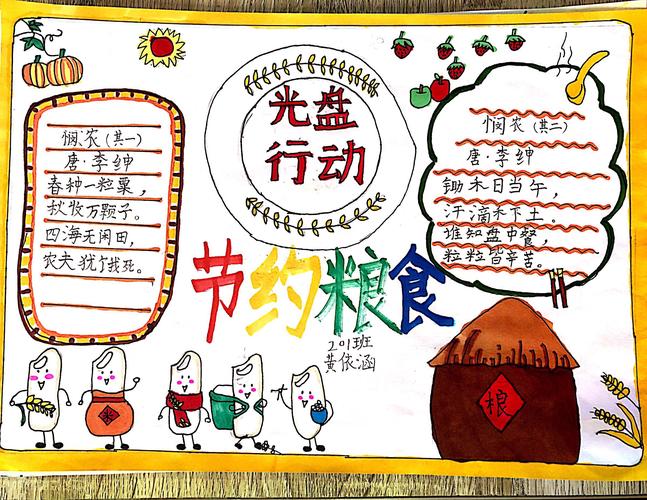 光盘
行动
悯农（其一）
唐·李绅
春种一粒粟，
秋收万颗子。
四海无闲田，
农夫犹饿死。
悯农（其二）
唐·李绅
锄禾日当午，
汗滴禾下土。
谁知盘中餐，
粒粒皆辛苦。
节约粮食
201班
黄依涵
米
粮